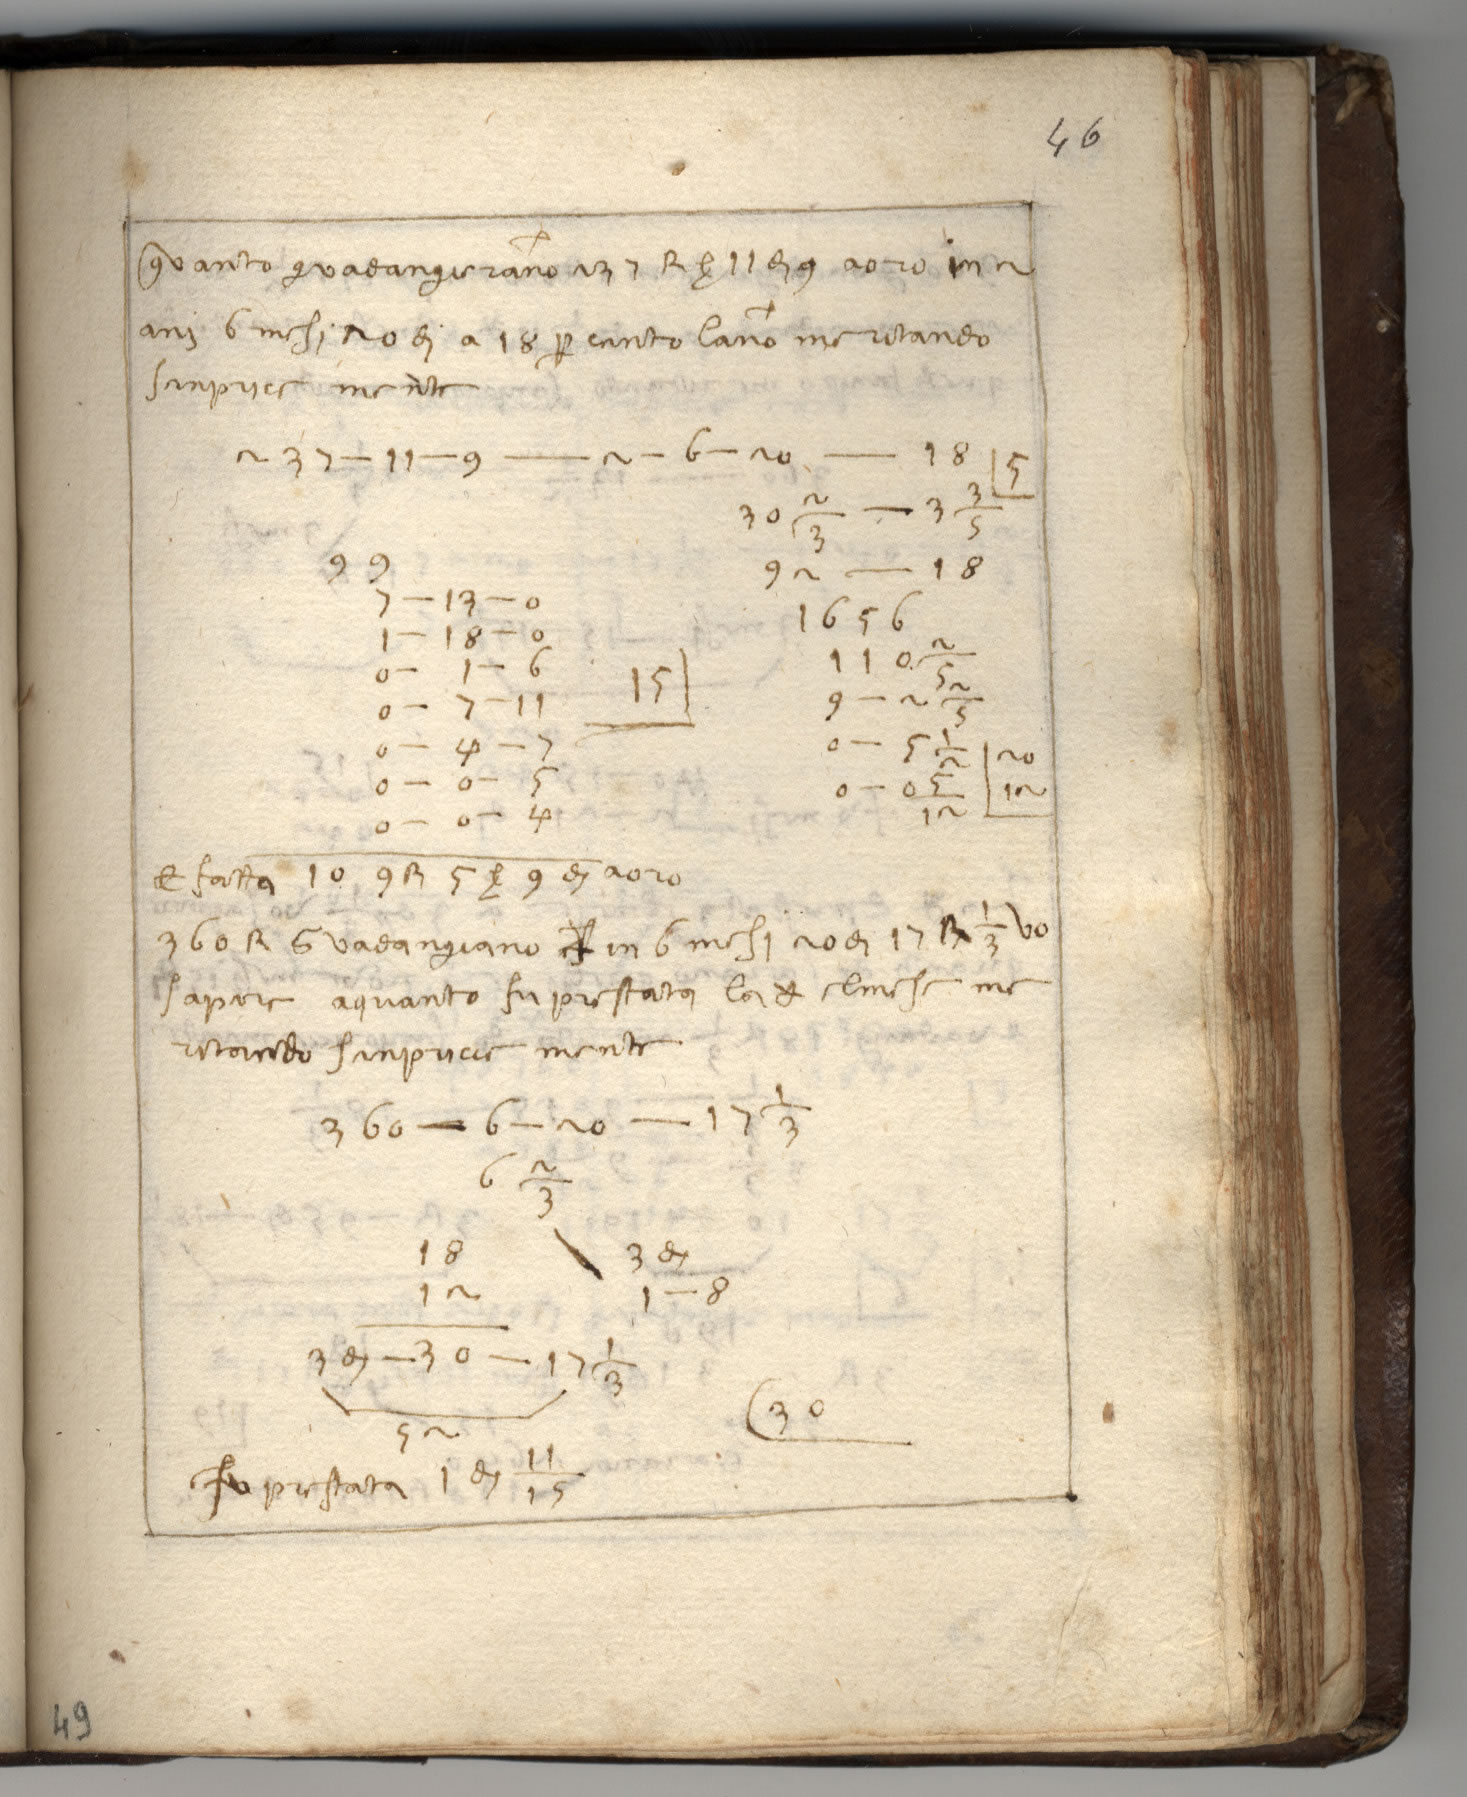 46
quanto guadangierano 237 ℞ ẜ 11 ₰ 9 aoro in 2
ani 6 mesi 20 di a 18 ꝑ cento lano meritando
sinpricemente
237 — 11 — 9 — 2 — 6 — 20 — 18 | 5
30 2/3 — 3 3/5
99
92 — 18
7 — 13 — 0
1656
1 — 18 — 0
110 2/5
0 — 1 — 6
15
9 — 2 2/5
0 — 7 — 11
0 — 4 — 7
0 — 5 1/2 | 20
0 — 0 — 5
0 — 0 5/12 | 12
0 — 0 — 4
& fatta 109 ℞ 5 ẜ 9 ₰ aoro
360 ℞ Guadangiano in 6 mesi 20 di 17 ℞ 1/3 vo
sapere aquanto fu prestata la & elmese me
ritando sinpricie mente
360 — 6 — 20 — 17 1/3
6 2/3
18
3 ₰
12
1 — 8
3 ₰ — 30 — 17 1/3
52
(30
fu prestata 1 ₰ 11/15
49